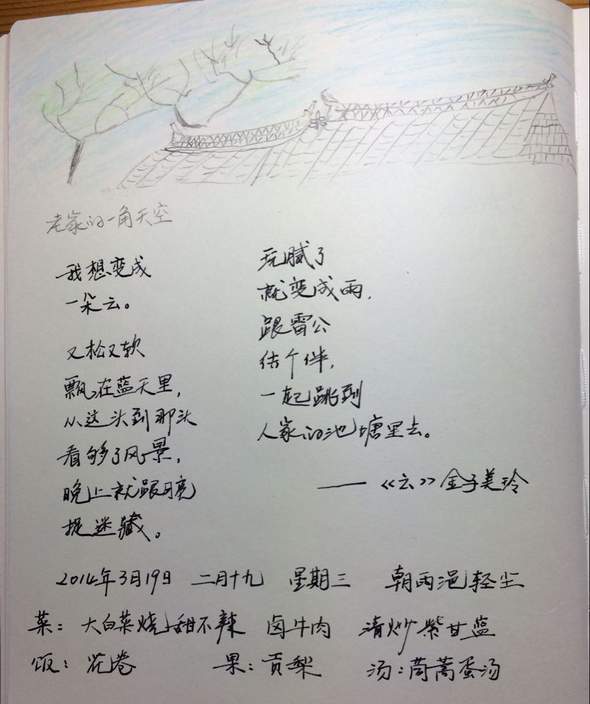 老家的一角天空
我想变成
一朵云。
又松又软
飘在蓝天里,
从这头到那头
看够了风景,
晚上就跟月亮
捉迷藏。
玩腻了
就变成雨,
跟雷公
结个伴,
一起跳到
人家的池塘里去。
——《云》金子美玲
2014年3月19日 二月十九 星期三 朝雨浥轻尘
菜: 大白菜烧甜不辣 卤牛肉 清炒紫甘蓝
饭: 花卷 果: 贡梨 汤: 茼蒿蛋汤